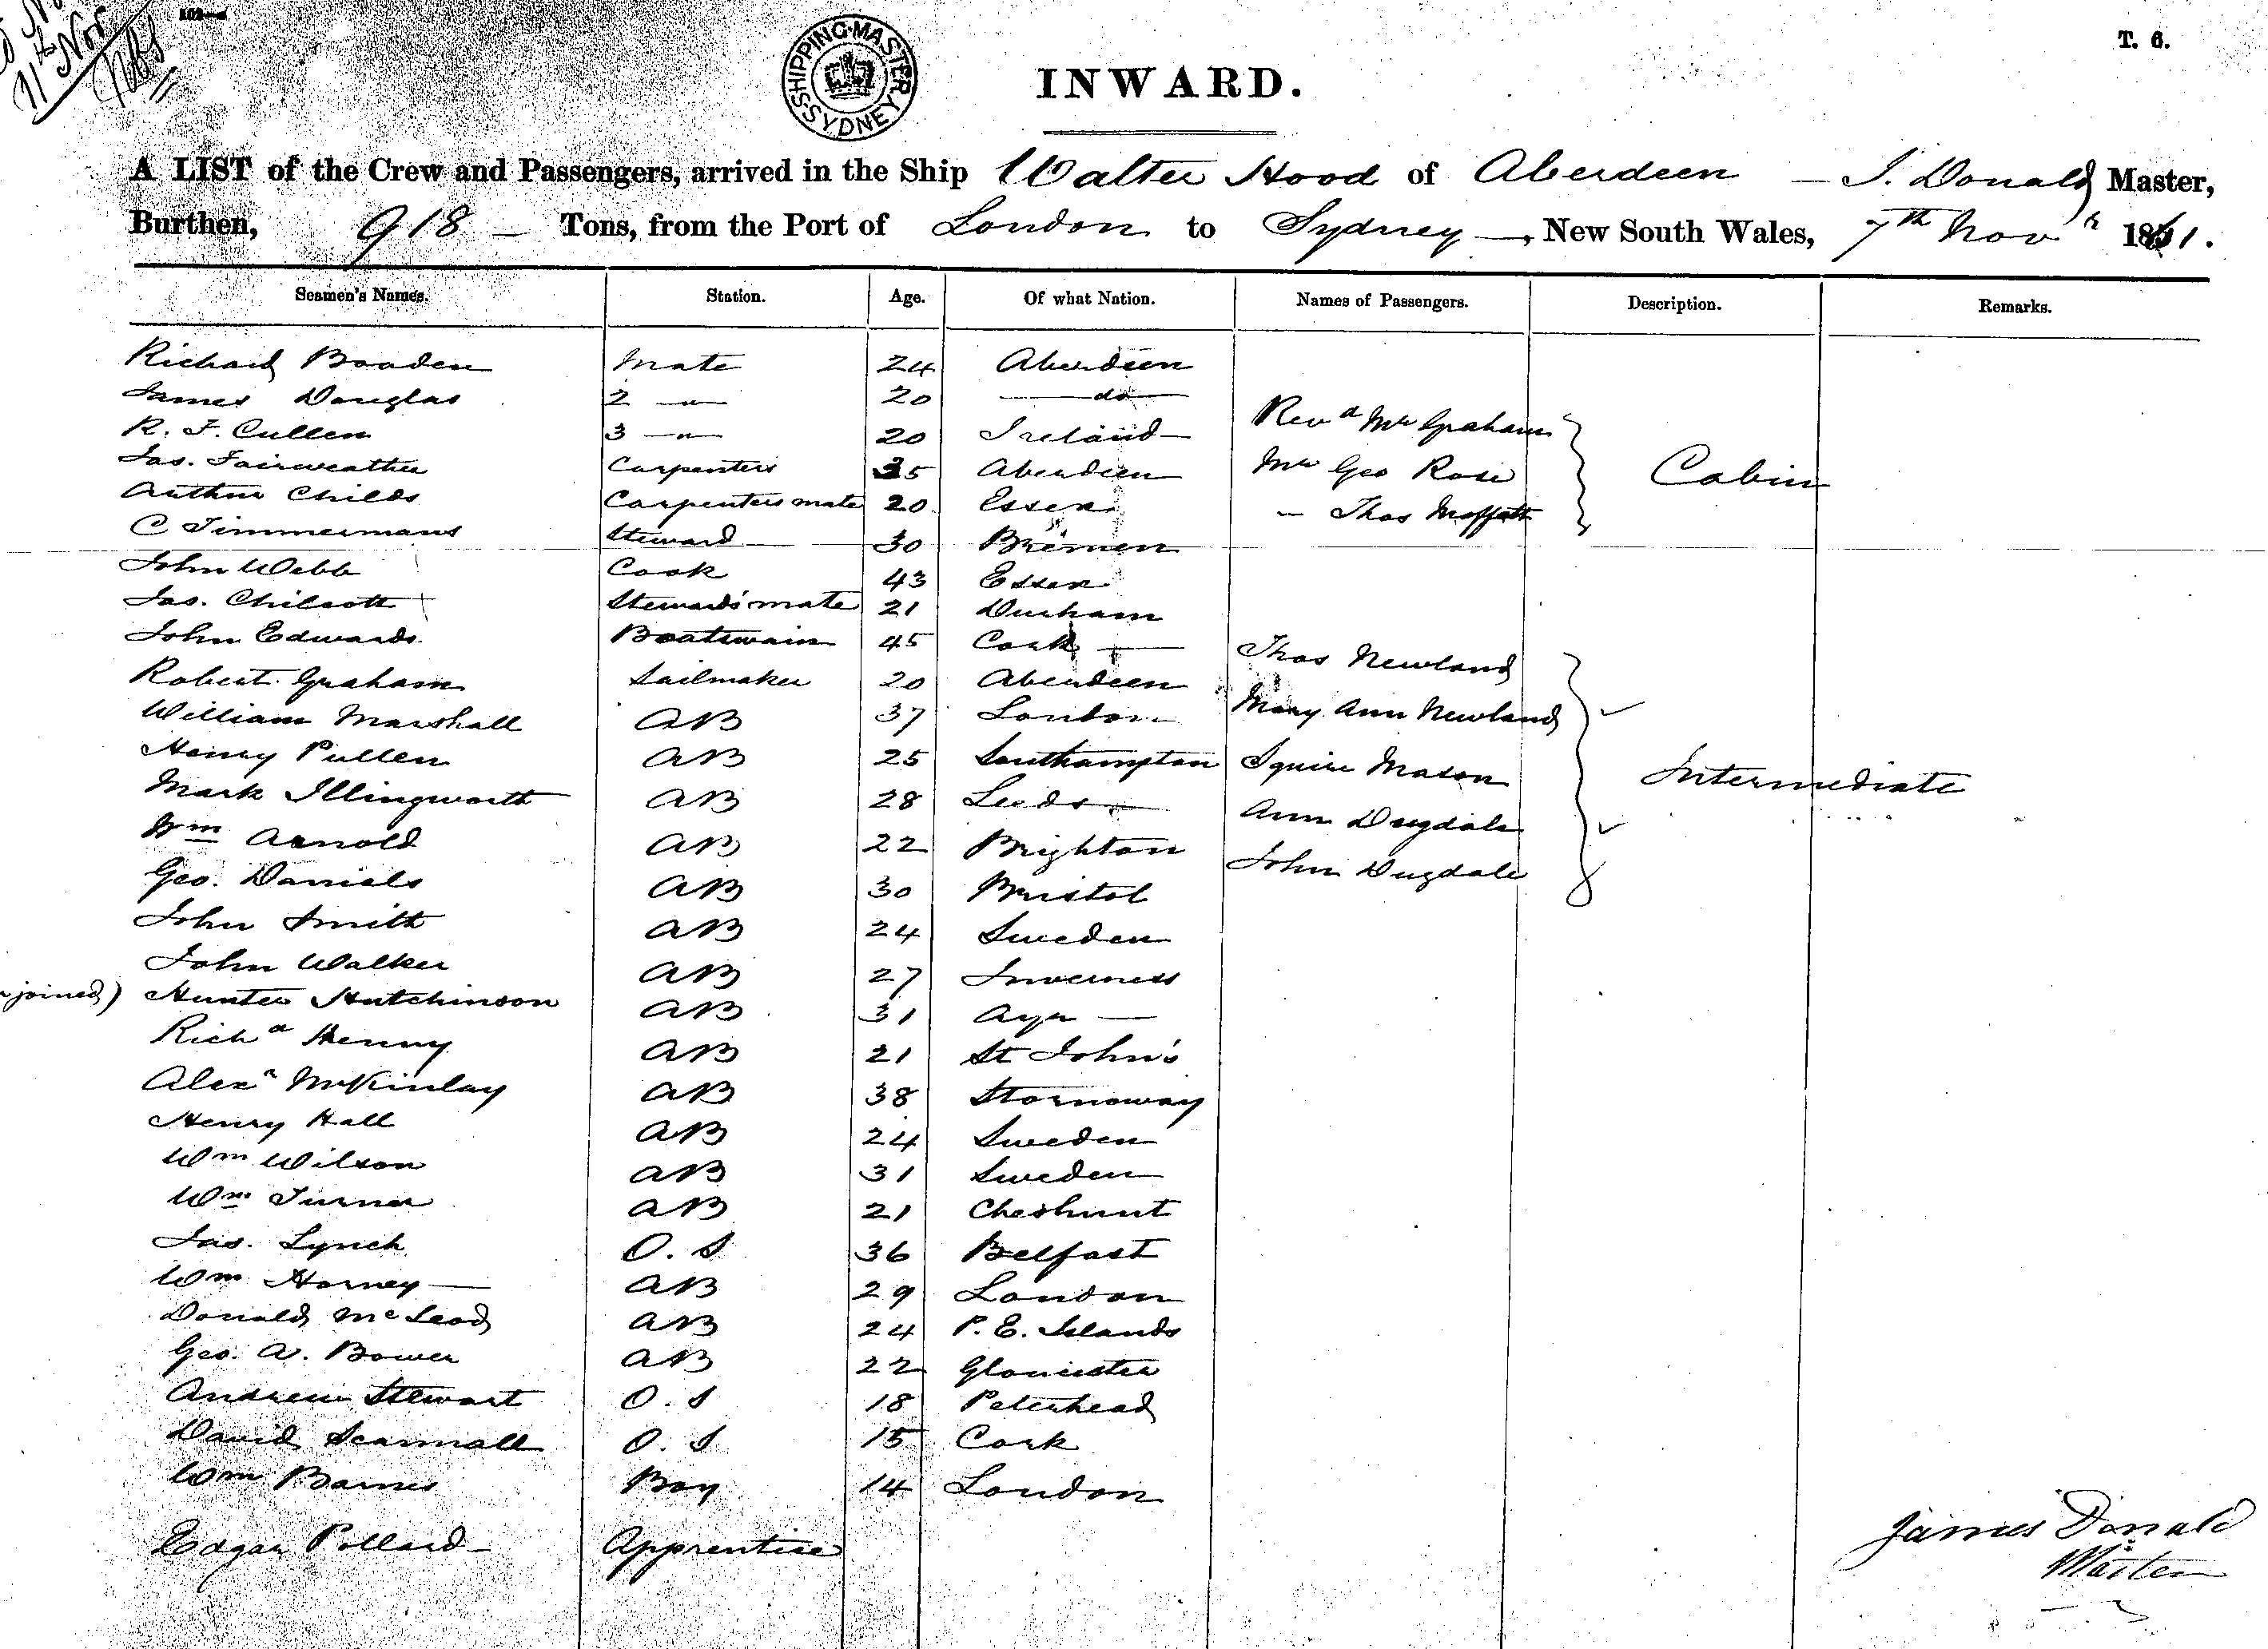 11th Nov
T. 6.
SHIPPING MASTER SYDNEY
INWARD.
A LIST of the Crew and Passengers, arrived in the Ship Walter Hood of Aberdeen — J. Donald Master,
Burthen, 918 — Tons, from the Port of London to Sydney —, New South Wales, 7th Novr 1861.
Seamen's Names. Station. Age. Of what Nation. Names of Passengers. Description. Remarks.
Richard Boaden Mate 24 Aberdeen
James Douglas 2 — " — 20 — do —
R. F. Cullen 3 — " — 20 Ireland — Revd Mr Graham
Jas. Fairweather Carpenters 35 Aberdeen Mr Geo Rose Cabin
Arthur Childs Carpenters mate 20 Essex — Thos Moffatt
C Timmermans Steward 30 Bremen
John Webb Cook 43 Essex
Jas. Chilcott Stewards' mate 21 Durham
John Edwards Boatswain 45 Cork — Thos Newland
Robert Graham Sailmaker 20 Aberdeen
William Marshall AB 37 London Mary Ann Newland
Henry Pullen AB 25 Southampton Squire Mason Intermediate
Mark Illingworth AB 28 Leeds — Ann Dugdale
Wm Arnold AB 22 Brighton John Dugdale
Geo. Daniels AB 30 Bristol
John Smith AB 24 Sweden
John Walker AB 27 Inverness
joined) Hunter Hutchinson AB 31 Ayr —
Richd Henny AB 21 St John's
Alexr McKinlay AB 38 Stornoway
Henry Hall AB 24 Sweden
Wm Wilson AB 31 Sweden
Wm Turner AB 21 Cheshunt
Jas. Lynch O. S 36 Belfast
Wm Horney — AB 29 London
Donald McLeod AB 24 P. E. Islands
Geo. A. Bower AB 22 Gloucester
Andrew Stewart O. S 18 Peterhead
David Scannall O. S 15 Cork
Wm Barnes Boy 14 London
Edgar Pollard — Apprentice
James Donald
Master